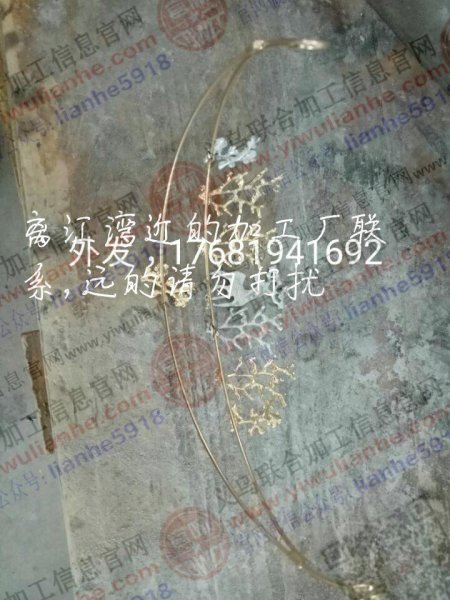 离江湾近的加工厂联
外发，17681941692
系,远的请勿打扰
义乌联合加工信息官网
www.yiwulianhe.com
公众号: lianhe5918